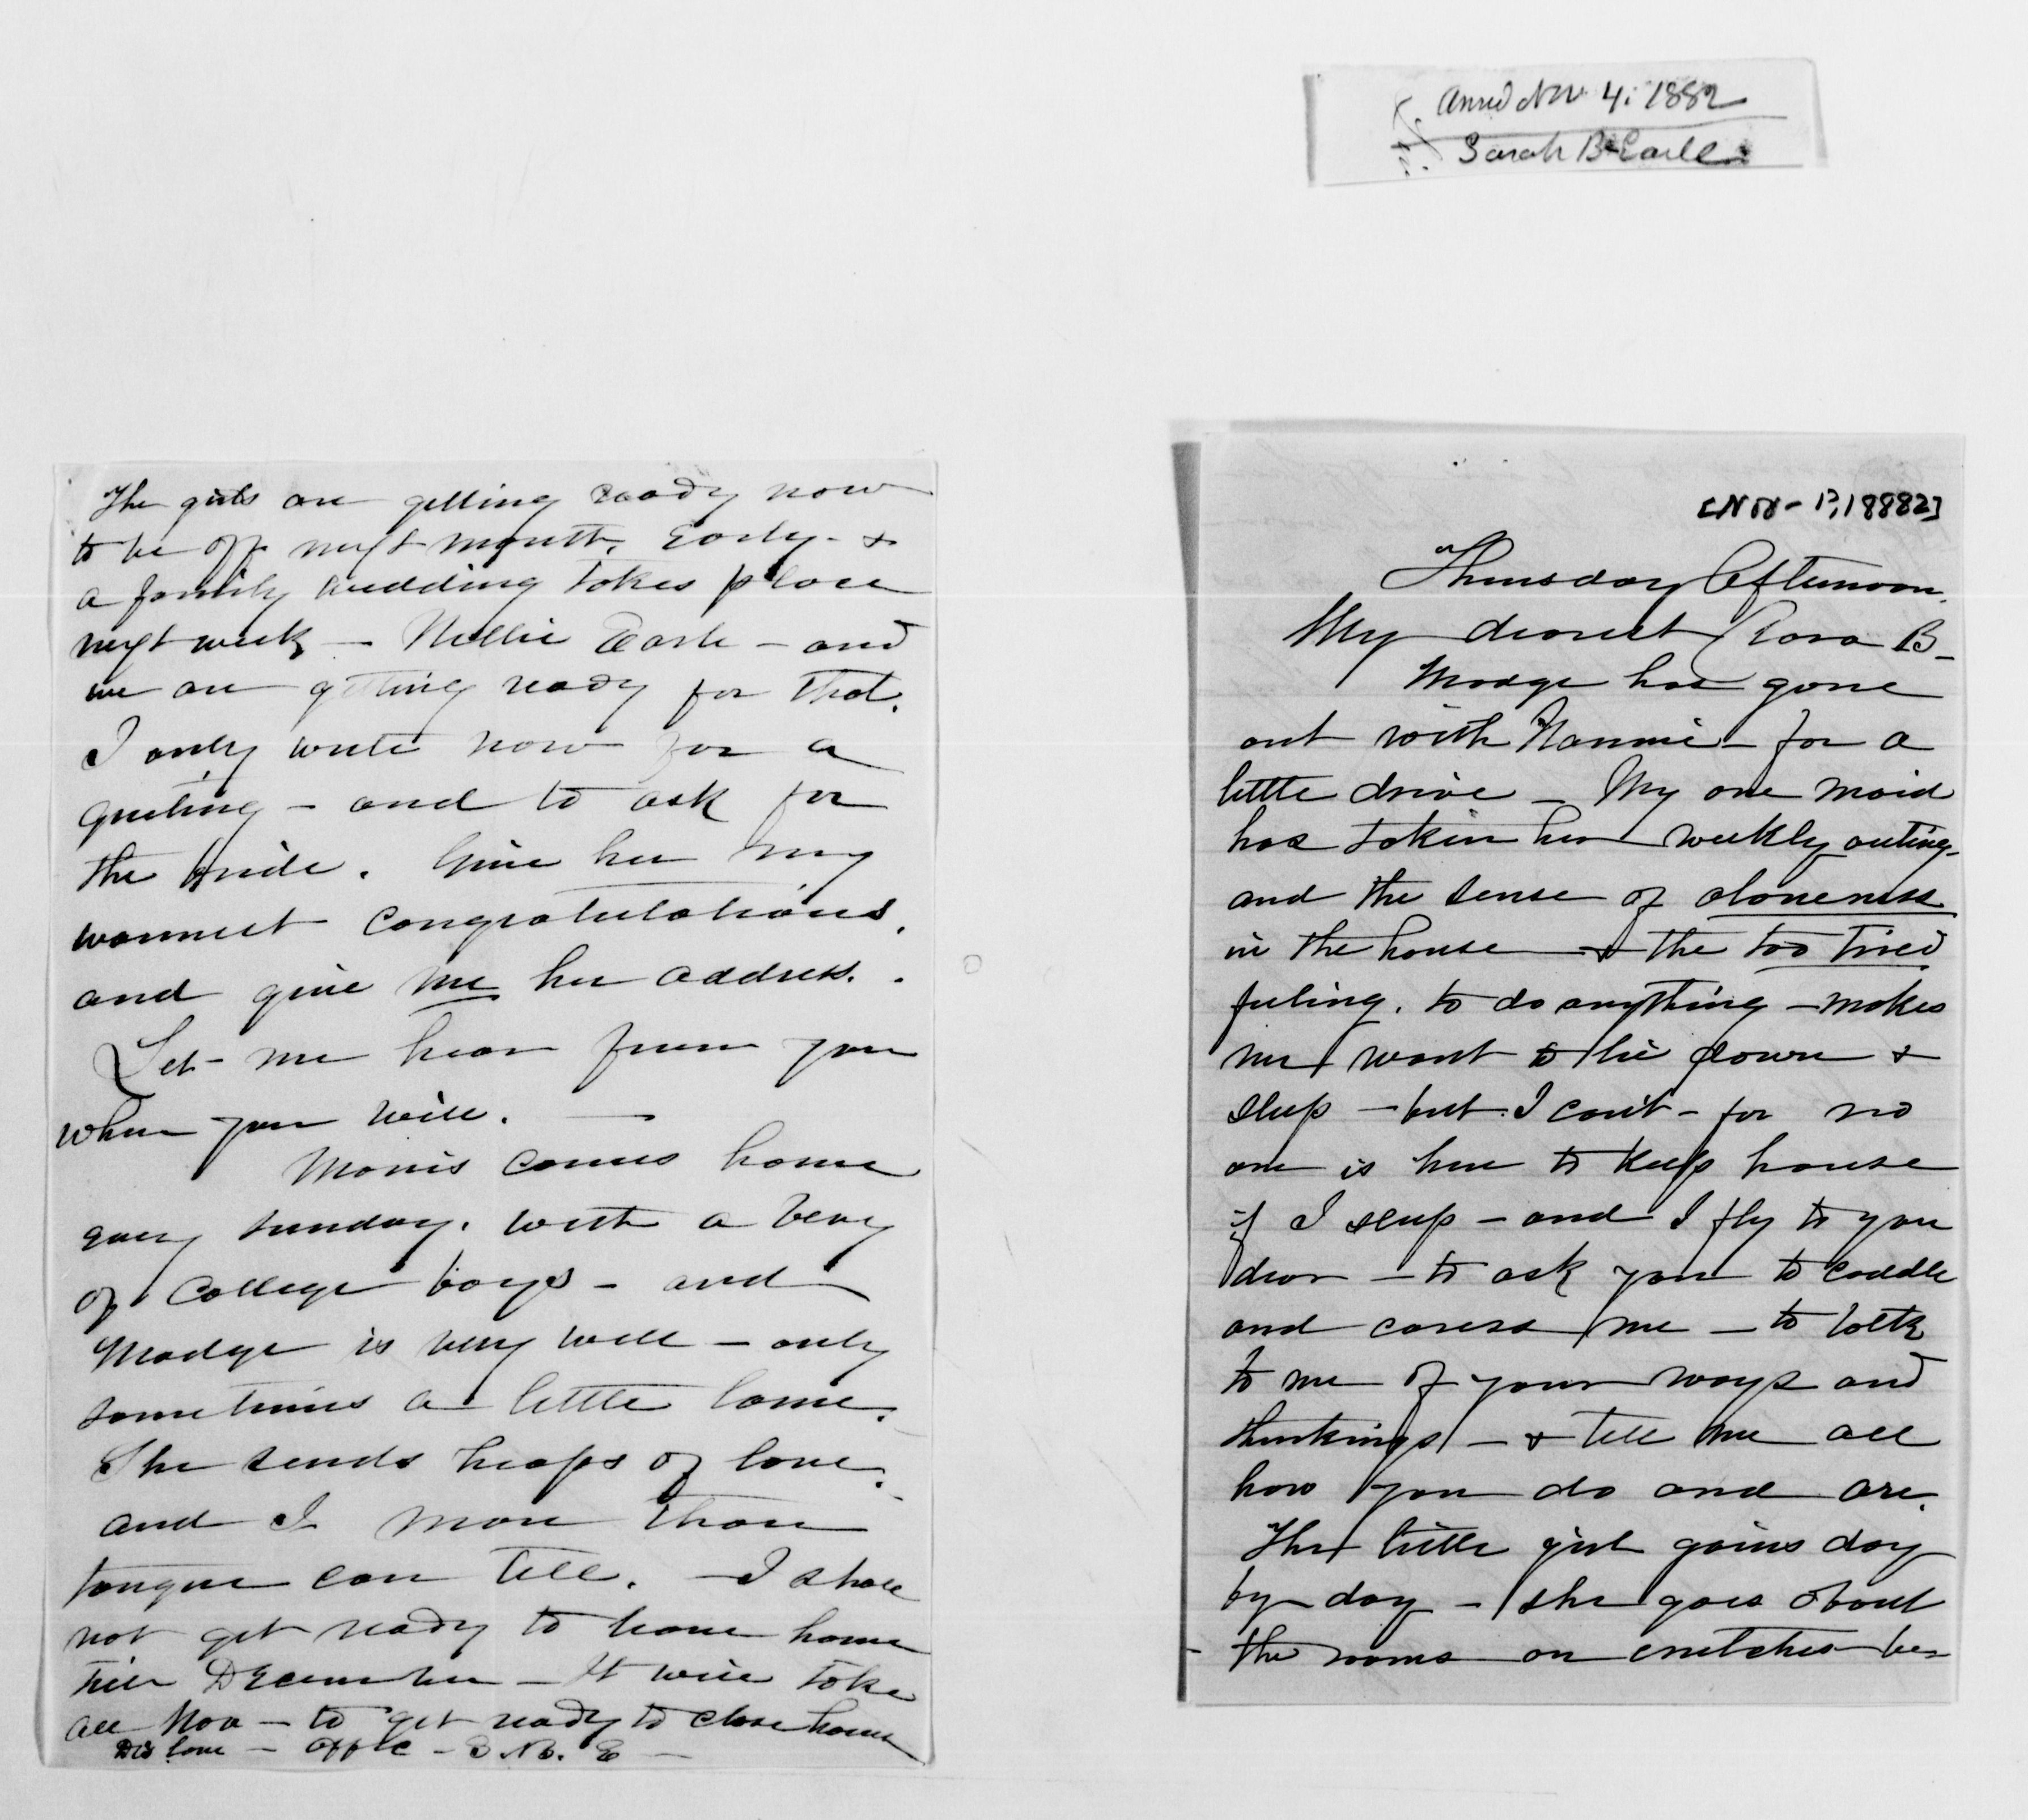 Ansd Nov 4. 1882
Sarah B Earle
The girls are getting ready now
to be off next month. Early - &
a family wedding takes place
next week - Nellie Earle - and
we are getting ready for that.
I only write now for a
greeting - and to ask for
the bride. Give her my
warmest congratulations.
and give me her address.
Let me hear from you
when you will. —
Morris comes home
every Sunday. with a bevy
of College boys - and
Madge is very well - only
sometimes a little lame.
She sends heaps of love.
and I more than
tongue can tell. - I shall
not get ready to leave home
till December - It will take
all Nov - to get ready to close house
love -
[Nov - 1?, 1882]
Thursday Afternoon.
My dearest Clara B -
Madge has gone
out with Nannie - for a
little drive - My one maid
has taken her weekly outing -
and the sense of aloneness
in the house & the too tired
feeling. to do anything - makes
me want to lie down &
sleep - but I can't - for no
one is here to keep house
if I sleep - and I fly to you
dear - to ask you to coddle
and caress me - to talk
to me of your ways and
thinkings - & tell me all
how you do and are.
The little girl gains day
by day - she goes about
the rooms on crutches -